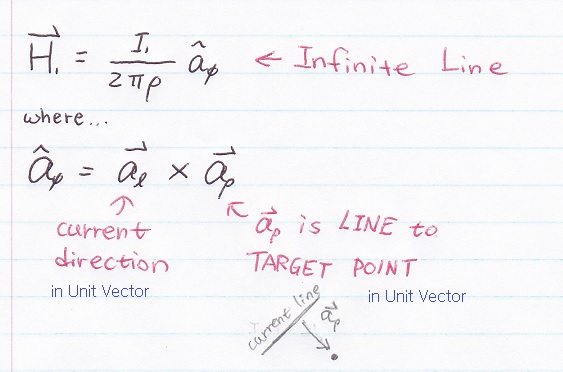 H⃗₁ = I₁ / 2πρ â_φ ← Infinite Line
where...
â_φ = a⃗_ℓ × a⃗_ρ
current direction
in Unit Vector
a⃗_ρ is LINE to
TARGET POINT
in Unit Vector
current line
a⃗_ρ